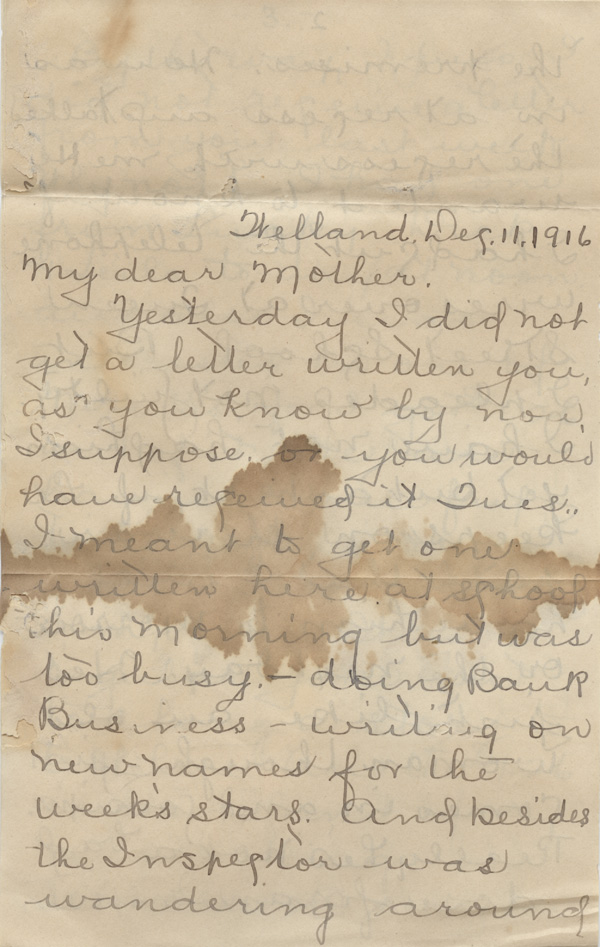 Welland, Dec. 11, 1916
My dear Mother.
Yesterday I did not
get a letter written you,
as you know by now,
I suppose, or you would
have received it Tues..
I meant to get one
written here at school
this morning but was
too busy, - doing Bank
Business - writing on
new names for the
week's stars. And besides
the Inspector was
wandering around